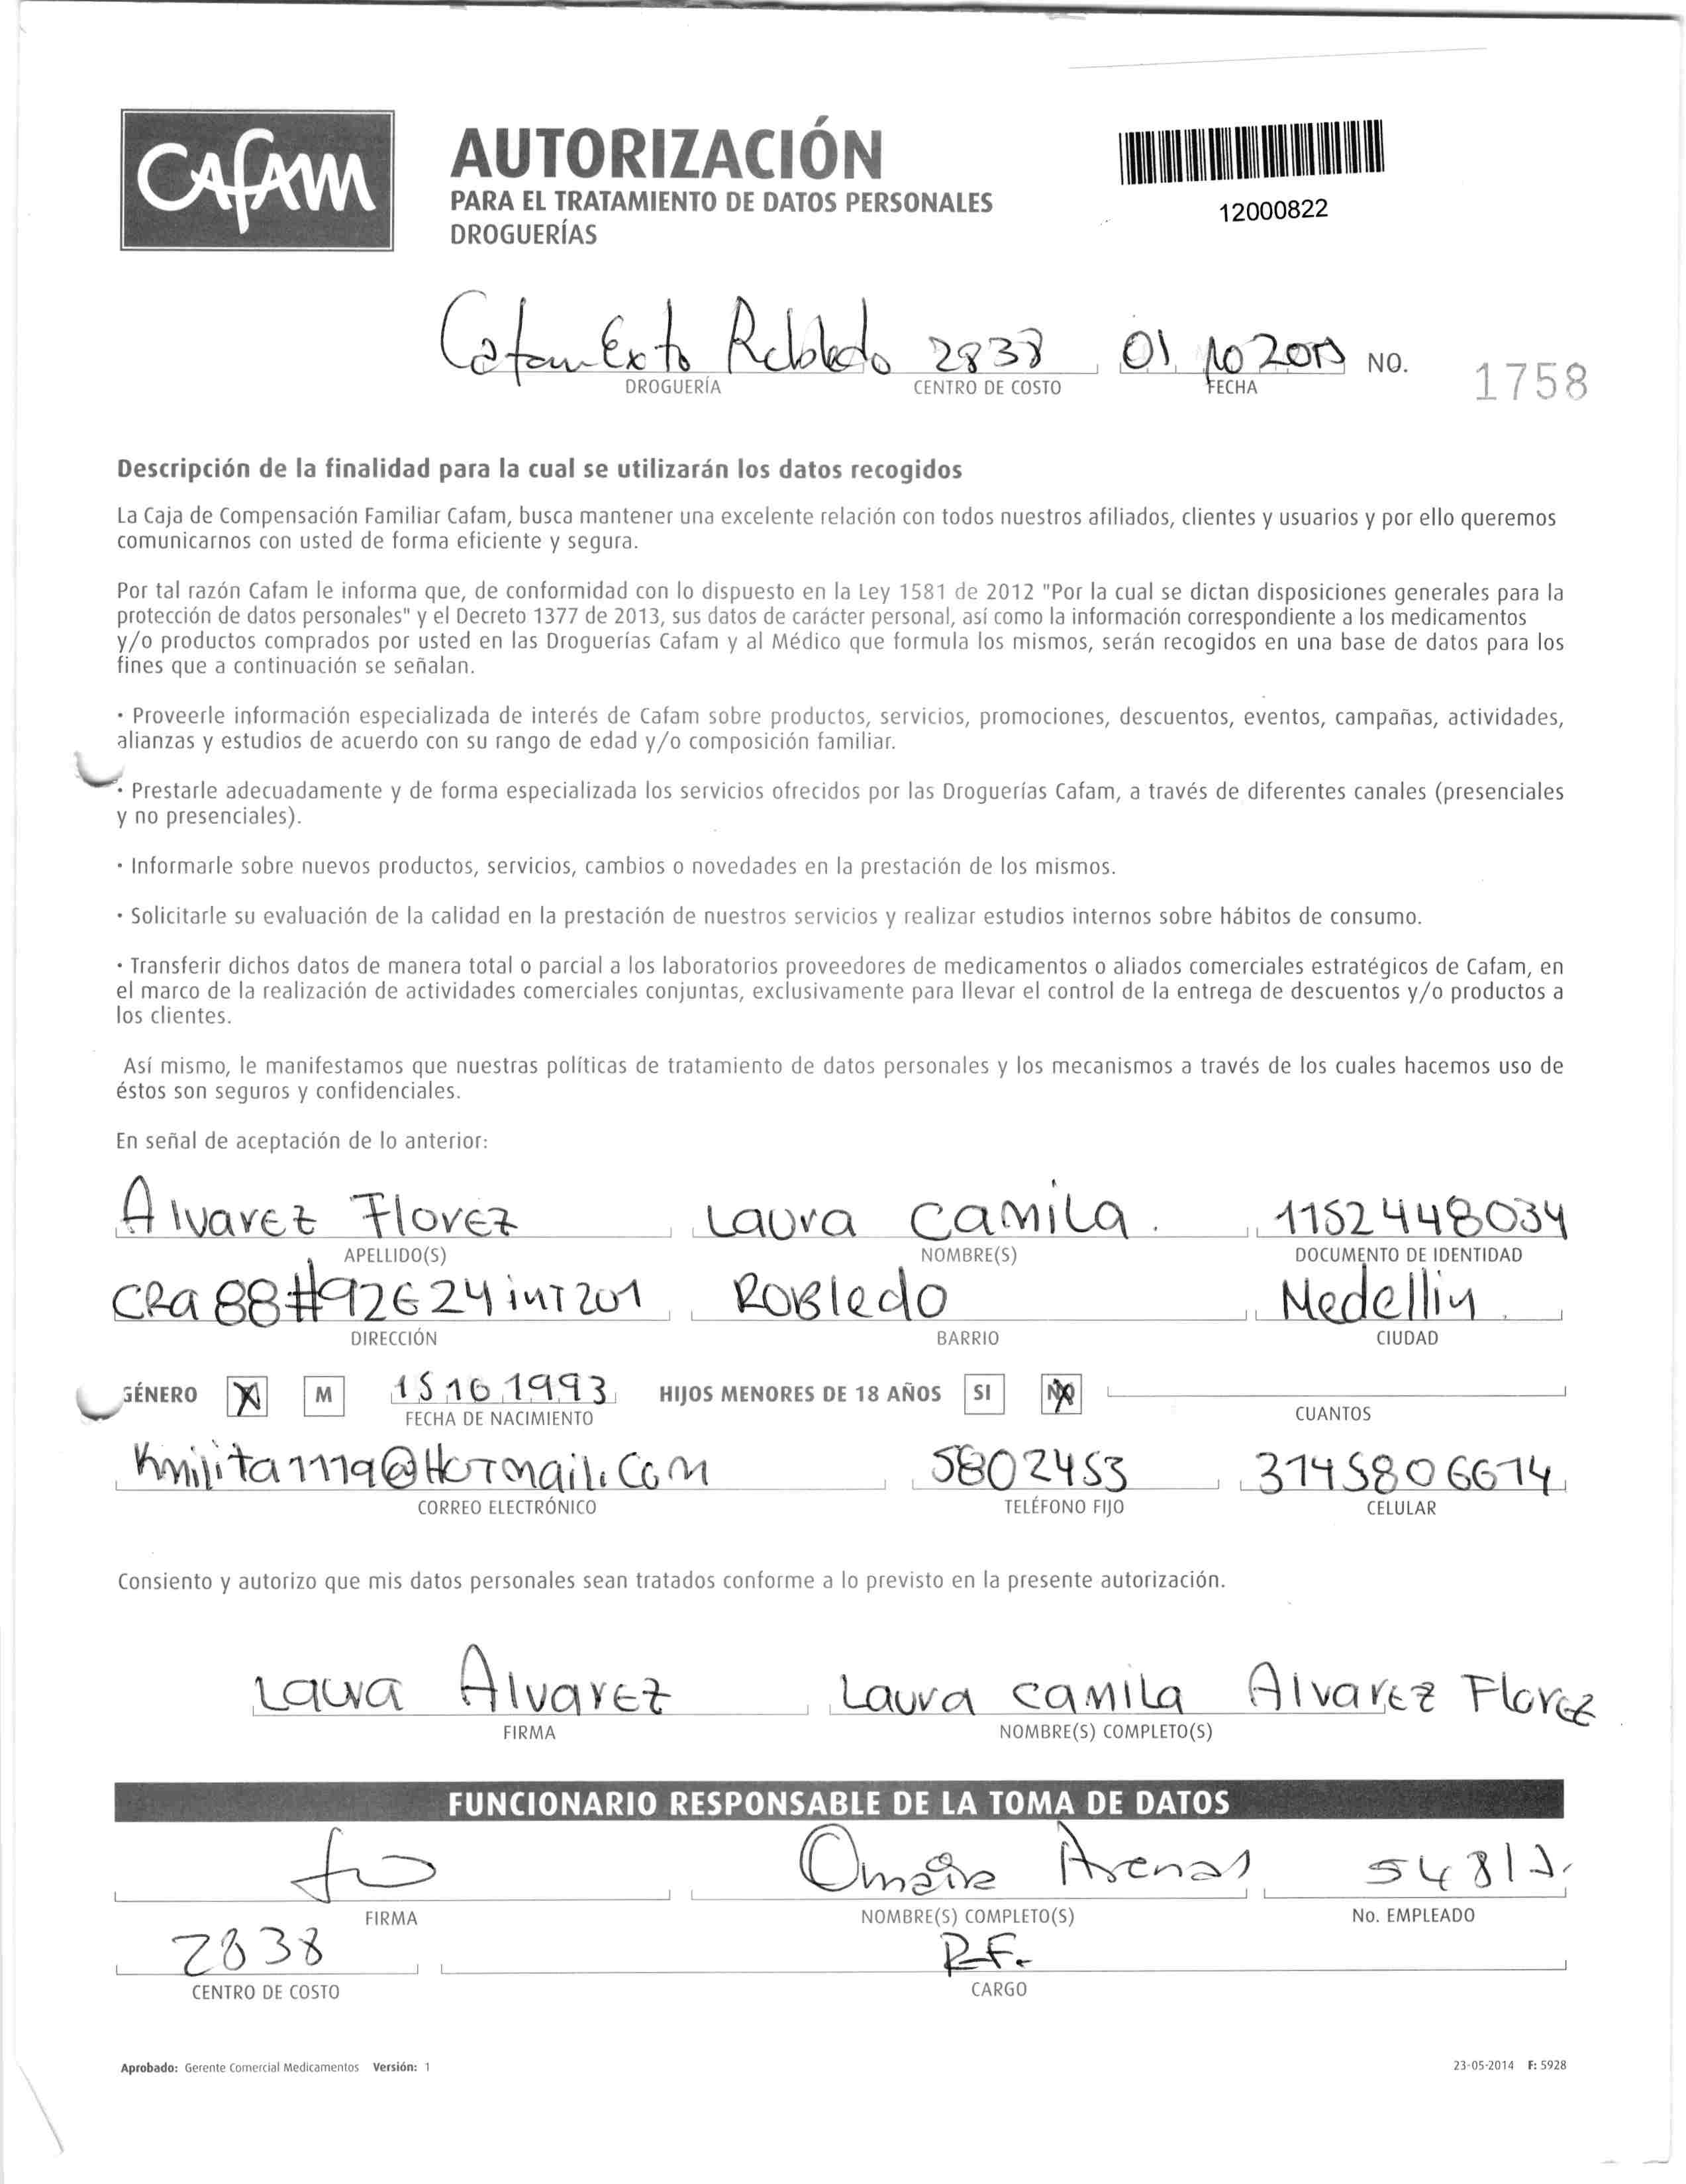 CAFAM
AUTORIZACIÓN
PARA EL TRATAMIENTO DE DATOS PERSONALES
DROGUERÍAS
12000822
Cafam Exito Robledo 2838 01 10 2015 NO. 1758
DROGUERÍA CENTRO DE COSTO FECHA
Descripción de la finalidad para la cual se utilizarán los datos recogidos
La Caja de Compensación Familiar Cafam, busca mantener una excelente relación con todos nuestros afiliados, clientes y usuarios y por ello queremos
comunicarnos con usted de forma eficiente y segura.
Por tal razón Cafam le informa que, de conformidad con lo dispuesto en la Ley 1581 de 2012 "Por la cual se dictan disposiciones generales para la
protección de datos personales" y el Decreto 1377 de 2013, sus datos de carácter personal, así como la información correspondiente a los medicamentos
y/o productos comprados por usted en las Droguerías Cafam y al Médico que formula los mismos, serán recogidos en una base de datos para los
fines que a continuación se señalan.
· Proveerle información especializada de interés de Cafam sobre productos, servicios, promociones, descuentos, eventos, campañas, actividades,
alianzas y estudios de acuerdo con su rango de edad y/o composición familiar.
· Prestarle adecuadamente y de forma especializada los servicios ofrecidos por las Droguerías Cafam, a través de diferentes canales (presenciales
y no presenciales).
· Informarle sobre nuevos productos, servicios, cambios o novedades en la prestación de los mismos.
· Solicitarle su evaluación de la calidad en la prestación de nuestros servicios y realizar estudios internos sobre hábitos de consumo.
· Transferir dichos datos de manera total o parcial a los laboratorios proveedores de medicamentos o aliados comerciales estratégicos de Cafam, en
el marco de la realización de actividades comerciales conjuntas, exclusivamente para llevar el control de la entrega de descuentos y/o productos a
los clientes.
Así mismo, le manifestamos que nuestras políticas de tratamiento de datos personales y los mecanismos a través de los cuales hacemos uso de
éstos son seguros y confidenciales.
En señal de aceptación de lo anterior:
Alvarez Florez Laura Camila. 1152448034
APELLIDO(S) NOMBRE(S) DOCUMENTO DE IDENTIDAD
CRa 88#92E24 inT 201 Robledo Medellin
DIRECCIÓN BARRIO CIUDAD
GÉNERO X M 15 10 1993 HIJOS MENORES DE 18 AÑOS SI NO
FECHA DE NACIMIENTO CUANTOS
Kmilita1119@Hotmail.com 5802453 3145806614
CORREO ELECTRÓNICO TELÉFONO FIJO CELULAR
Consiento y autorizo que mis datos personales sean tratados conforme a lo previsto en la presente autorización.
Laura Alvarez Laura camila Alvarez Florez
FIRMA NOMBRE(S) COMPLETO(S)
FUNCIONARIO RESPONSABLE DE LA TOMA DE DATOS
Omaira Arenas
FIRMA NOMBRE(S) COMPLETO(S) No. EMPLEADO
2838 R.F.
CENTRO DE COSTO CARGO
Aprobado: Gerente Comercial Medicamentos Versión: 1 23-05-2014 F: 5928